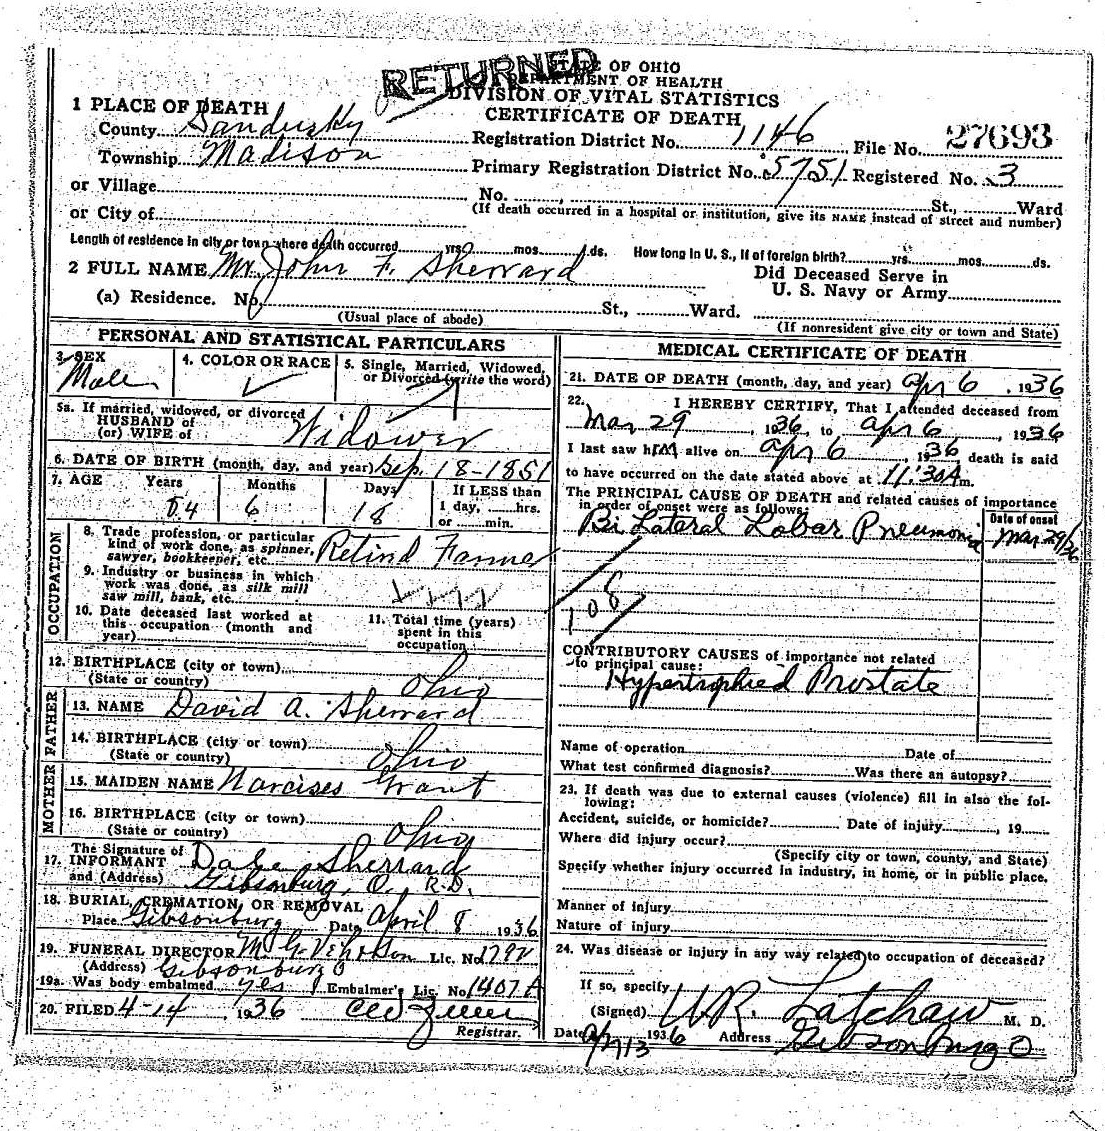 RETURNED
STATE OF OHIO
DEPARTMENT OF HEALTH
DIVISION OF VITAL STATISTICS
CERTIFICATE OF DEATH
1 PLACE OF DEATH
County Sandusky
Registration District No. 1146 File No. 27693
Township Madison
Primary Registration District No. 5751 Registered No. 3
or Village
No. St., Ward
or City of
(If death occurred in a hospital or institution, give its NAME instead of street and number)
Length of residence in city or town where death occurred yrs. mos. ds. How long in U. S., if of foreign birth? yrs. mos. ds.
2 FULL NAME Mr. John F. Sherrard
Did Deceased Serve in
U. S. Navy or Army
(a) Residence. No. St., Ward.
(Usual place of abode) (If nonresident give city or town and State)
PERSONAL AND STATISTICAL PARTICULARS
3. SEX
Male
4. COLOR OR RACE
5. Single, Married, Widowed,
or Divorced (write the word)
5a. If married, widowed, or divorced
HUSBAND of
(or) WIFE of
Widower
6. DATE OF BIRTH (month, day, and year) Sep. 18-1851
7. AGE Years Months Days If LESS than
1 day, hrs.
or min.
84 6 18
OCCUPATION
8. Trade, profession, or particular
kind of work done, as spinner,
sawyer, bookkeeper, etc. Retired Farmer
9. Industry or business in which
work was done, as silk mill
saw mill, bank, etc.
10. Date deceased last worked at
this occupation (month and
year)
11. Total time (years)
spent in this
occupation
12. BIRTHPLACE (city or town)
(State or country) Ohio
FATHER
13. NAME David A. Sherrard
14. BIRTHPLACE (city or town)
(State or country) Ohio
MOTHER
15. MAIDEN NAME Narcises Grant
16. BIRTHPLACE (city or town)
(State or country) Ohio
The Signature of
17. INFORMANT Sherrard
and (Address) Gibsonburg, O., R.D.
18. BURIAL, CREMATION, OR REMOVAL
Place Gibsonburg Date April 8 1936
19. FUNERAL DIRECTOR Lic. No.
(Address) Gibsonburg O
19a. Was body embalmed yes Embalmer's Lic. No. 1407A
20. FILED 4-14 1936
Registrar.
MEDICAL CERTIFICATE OF DEATH
21. DATE OF DEATH (month, day, and year) Apr 6, 1936
22. I HEREBY CERTIFY, That I attended deceased from
Mar 29, 1936, to Apr 6, 1936
I last saw him alive on Apr 6, 1936 death is said
to have occurred on the date stated above at 11:30 A m.
The PRINCIPAL CAUSE OF DEATH and related causes of importance
in order of onset were as follows:
Date of onset
Bi Lateral Lobar Pneumonia Mar 29/36
108
CONTRIBUTORY CAUSES of importance not related
to principal cause:
Hypertrophied Prostate
Name of operation Date of
What test confirmed diagnosis? Was there an autopsy?
23. If death was due to external causes (violence) fill in also the fol-
lowing:
Accident, suicide, or homicide? Date of injury, 19
Where did injury occur?
(Specify city or town, county, and State)
Specify whether injury occurred in industry, in home, or in public place.
Manner of injury
Nature of injury
24. Was disease or injury in any way related to occupation of deceased?
If so, specify
(Signed) Latchaw M. D.
Date 1936 Address Gibsonburg O